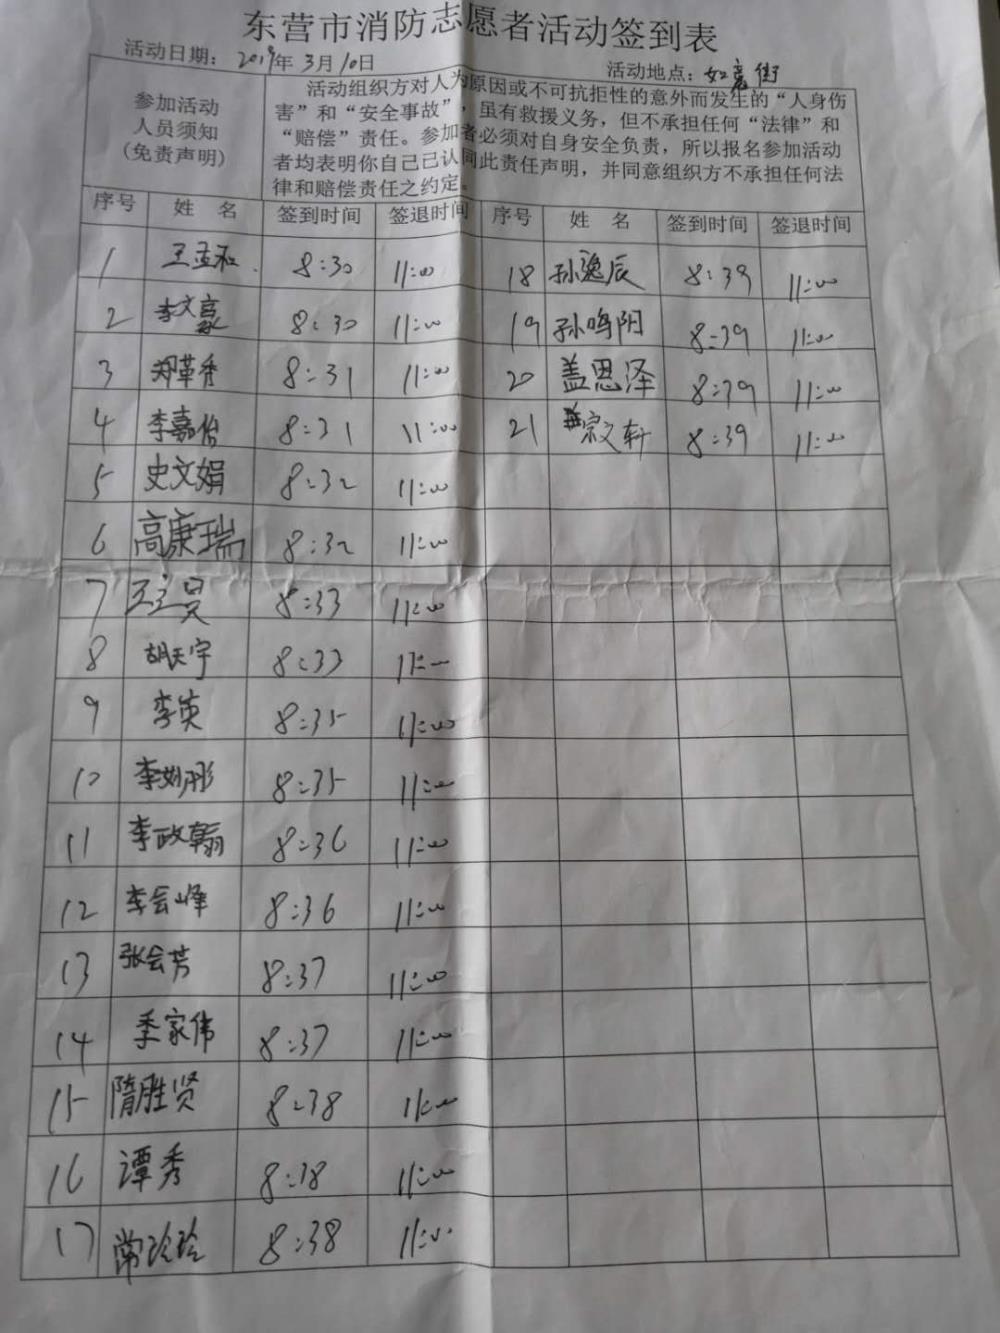 东营市消防志愿者活动签到表
活动日期： 2019年 3月10日
活动地点：如意街
参加活动
人员须知
(免责声明)
活动组织方对人为原因或不可抗拒性的意外而发生的“人身伤
害”和“安全事故”，虽有救援义务，但不承担任何“法律”和
“赔偿”责任。参加者必须对自身安全负责，所以报名参加活动
者均表明你自己已认同此责任声明，并同意组织方不承担任何法
律和赔偿责任之约定。
序号 姓 名 签到时间 签退时间 序号 姓 名 签到时间 签退时间
1 王孟和 8:30 11:00 18 孙逸辰 8:39 11:00
2 李文豪 8:30 11:00 19 孙鸣阳 8:39 11:00
3 郑革秀 8:31 11:00 20 盖恩泽 8:39 11:00
4 李嘉怡 8:31 11:00 21 宗文轩 8:39 11:00
5 史文娟 8:32 11:00
6 高康瑞 8:32 11:00
7 8:33 11:00
8 胡天宇 8:33 11:00
9 李英 8:35 11:00
10 李刘彤 8:35 11:00
11 李政翰 8:36 11:00
12 李会峰 8:36 11:00
13 张会芳 8:37 11:00
14 季家伟 8:37 11:00
15 隋胜贤 8:38 11:00
16 谭秀 8:38 11:00
17 常玲玲 8:38 11:00